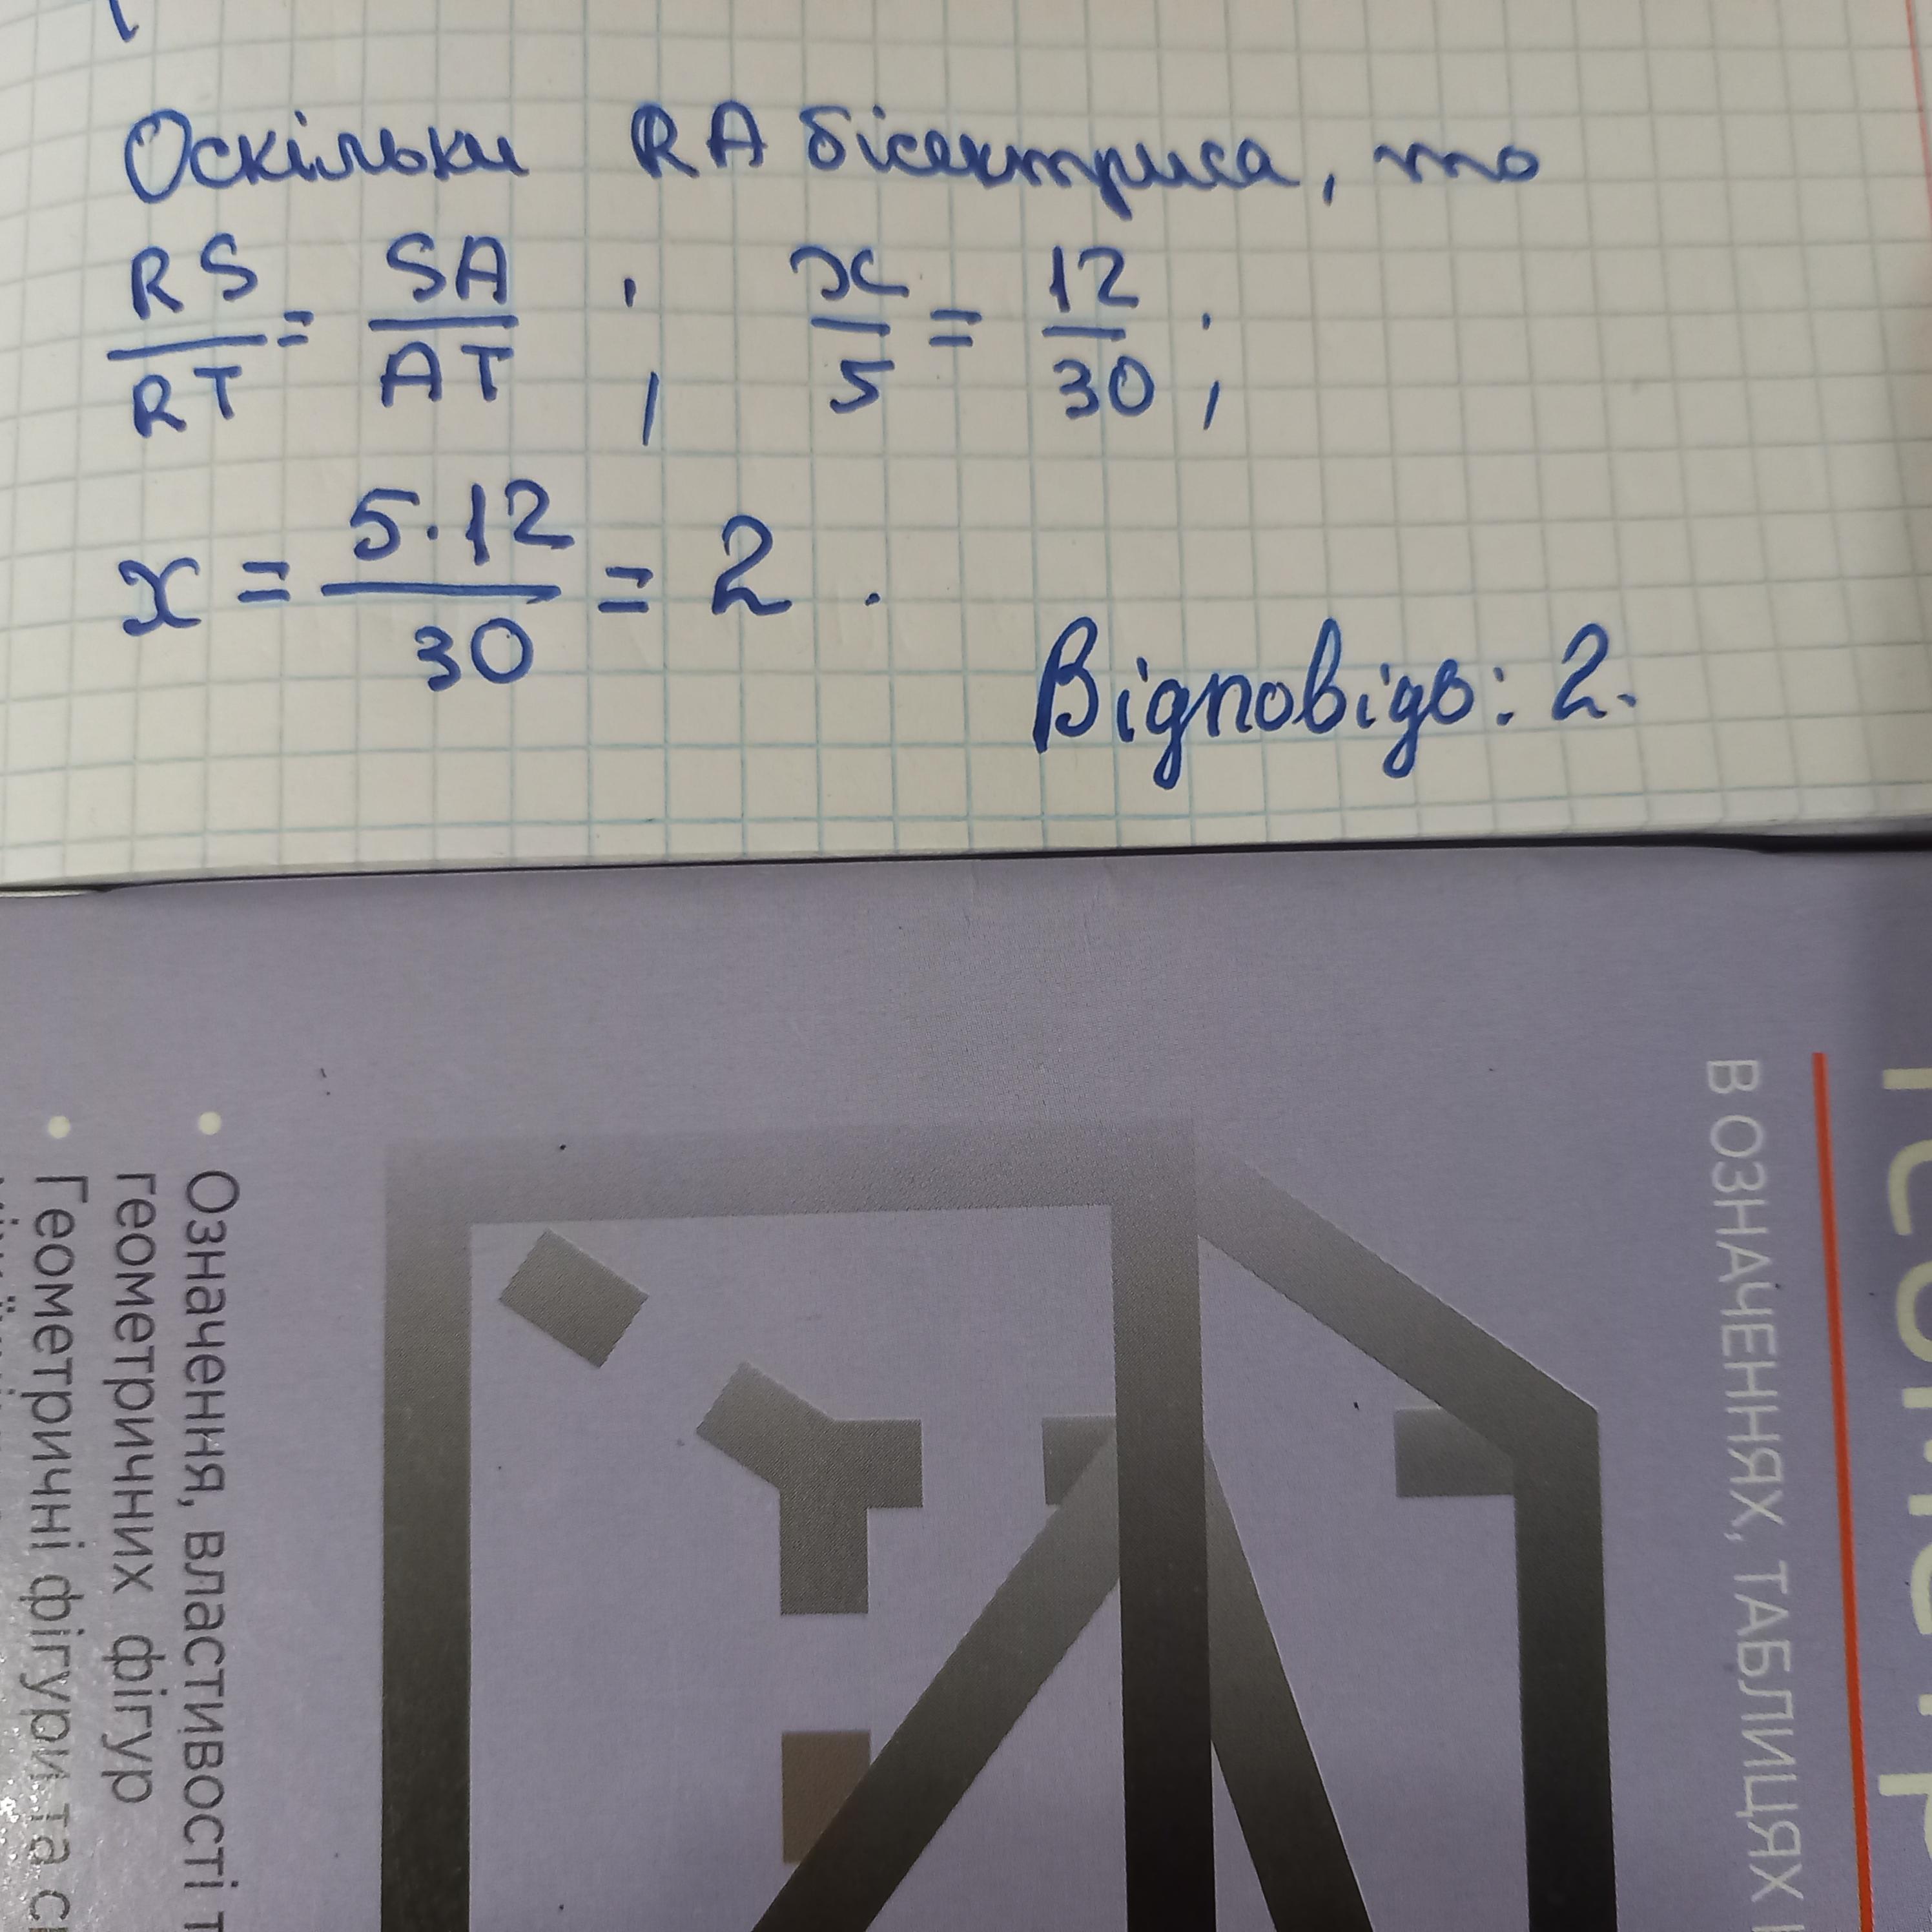 Оскільки RA бісектриса, то
RS/RT = SA/AT ; x/5 = 12/30 ;
x = 5·12/30 = 2 .
Відповідь: 2.
В ОЗНАЧЕННЯХ, ТАБЛИЦЯХ
• Означення, властивості
геометричних фігур
• Геометричні фігури та